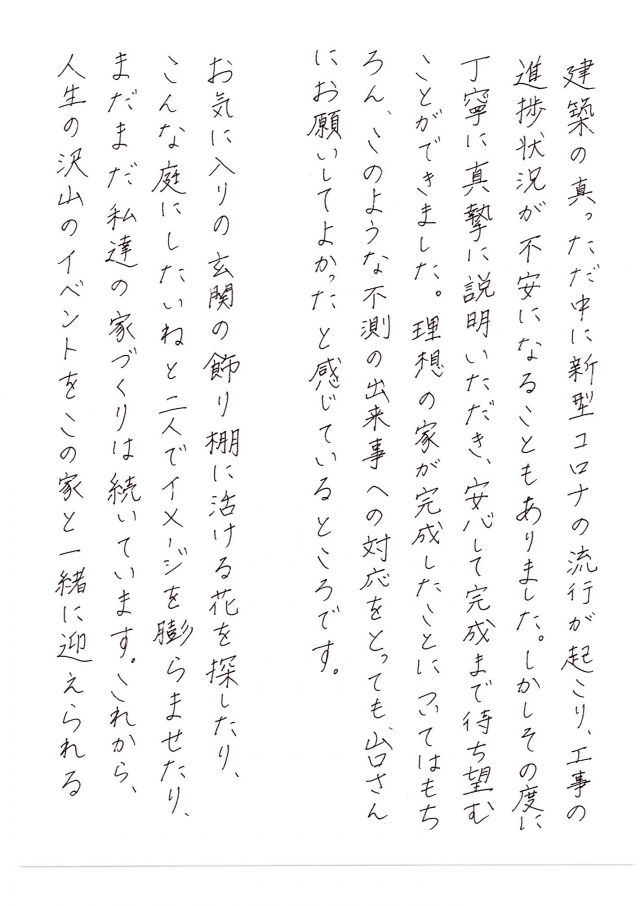 建築の真っただ中に新型コロナの流行が起こり、工事の
進捗状況が不安になることもありました。しかしその度に
丁寧に真摯に説明いただき、安心して完成まで待ち望む
ことができました。理想の家が完成したことについてはもち
ろん、このような不測の出来事への対応をとっても、山口さん
にお願いしてよかったと感じているところです。
お気に入りの玄関の飾り棚に活ける花を探したり、
こんな庭にしたいねと二人でイメージを膨らませたり、
まだまだ私達の家づくりは続いています。これから、
人生の沢山のイベントをこの家と一緒に迎えられる